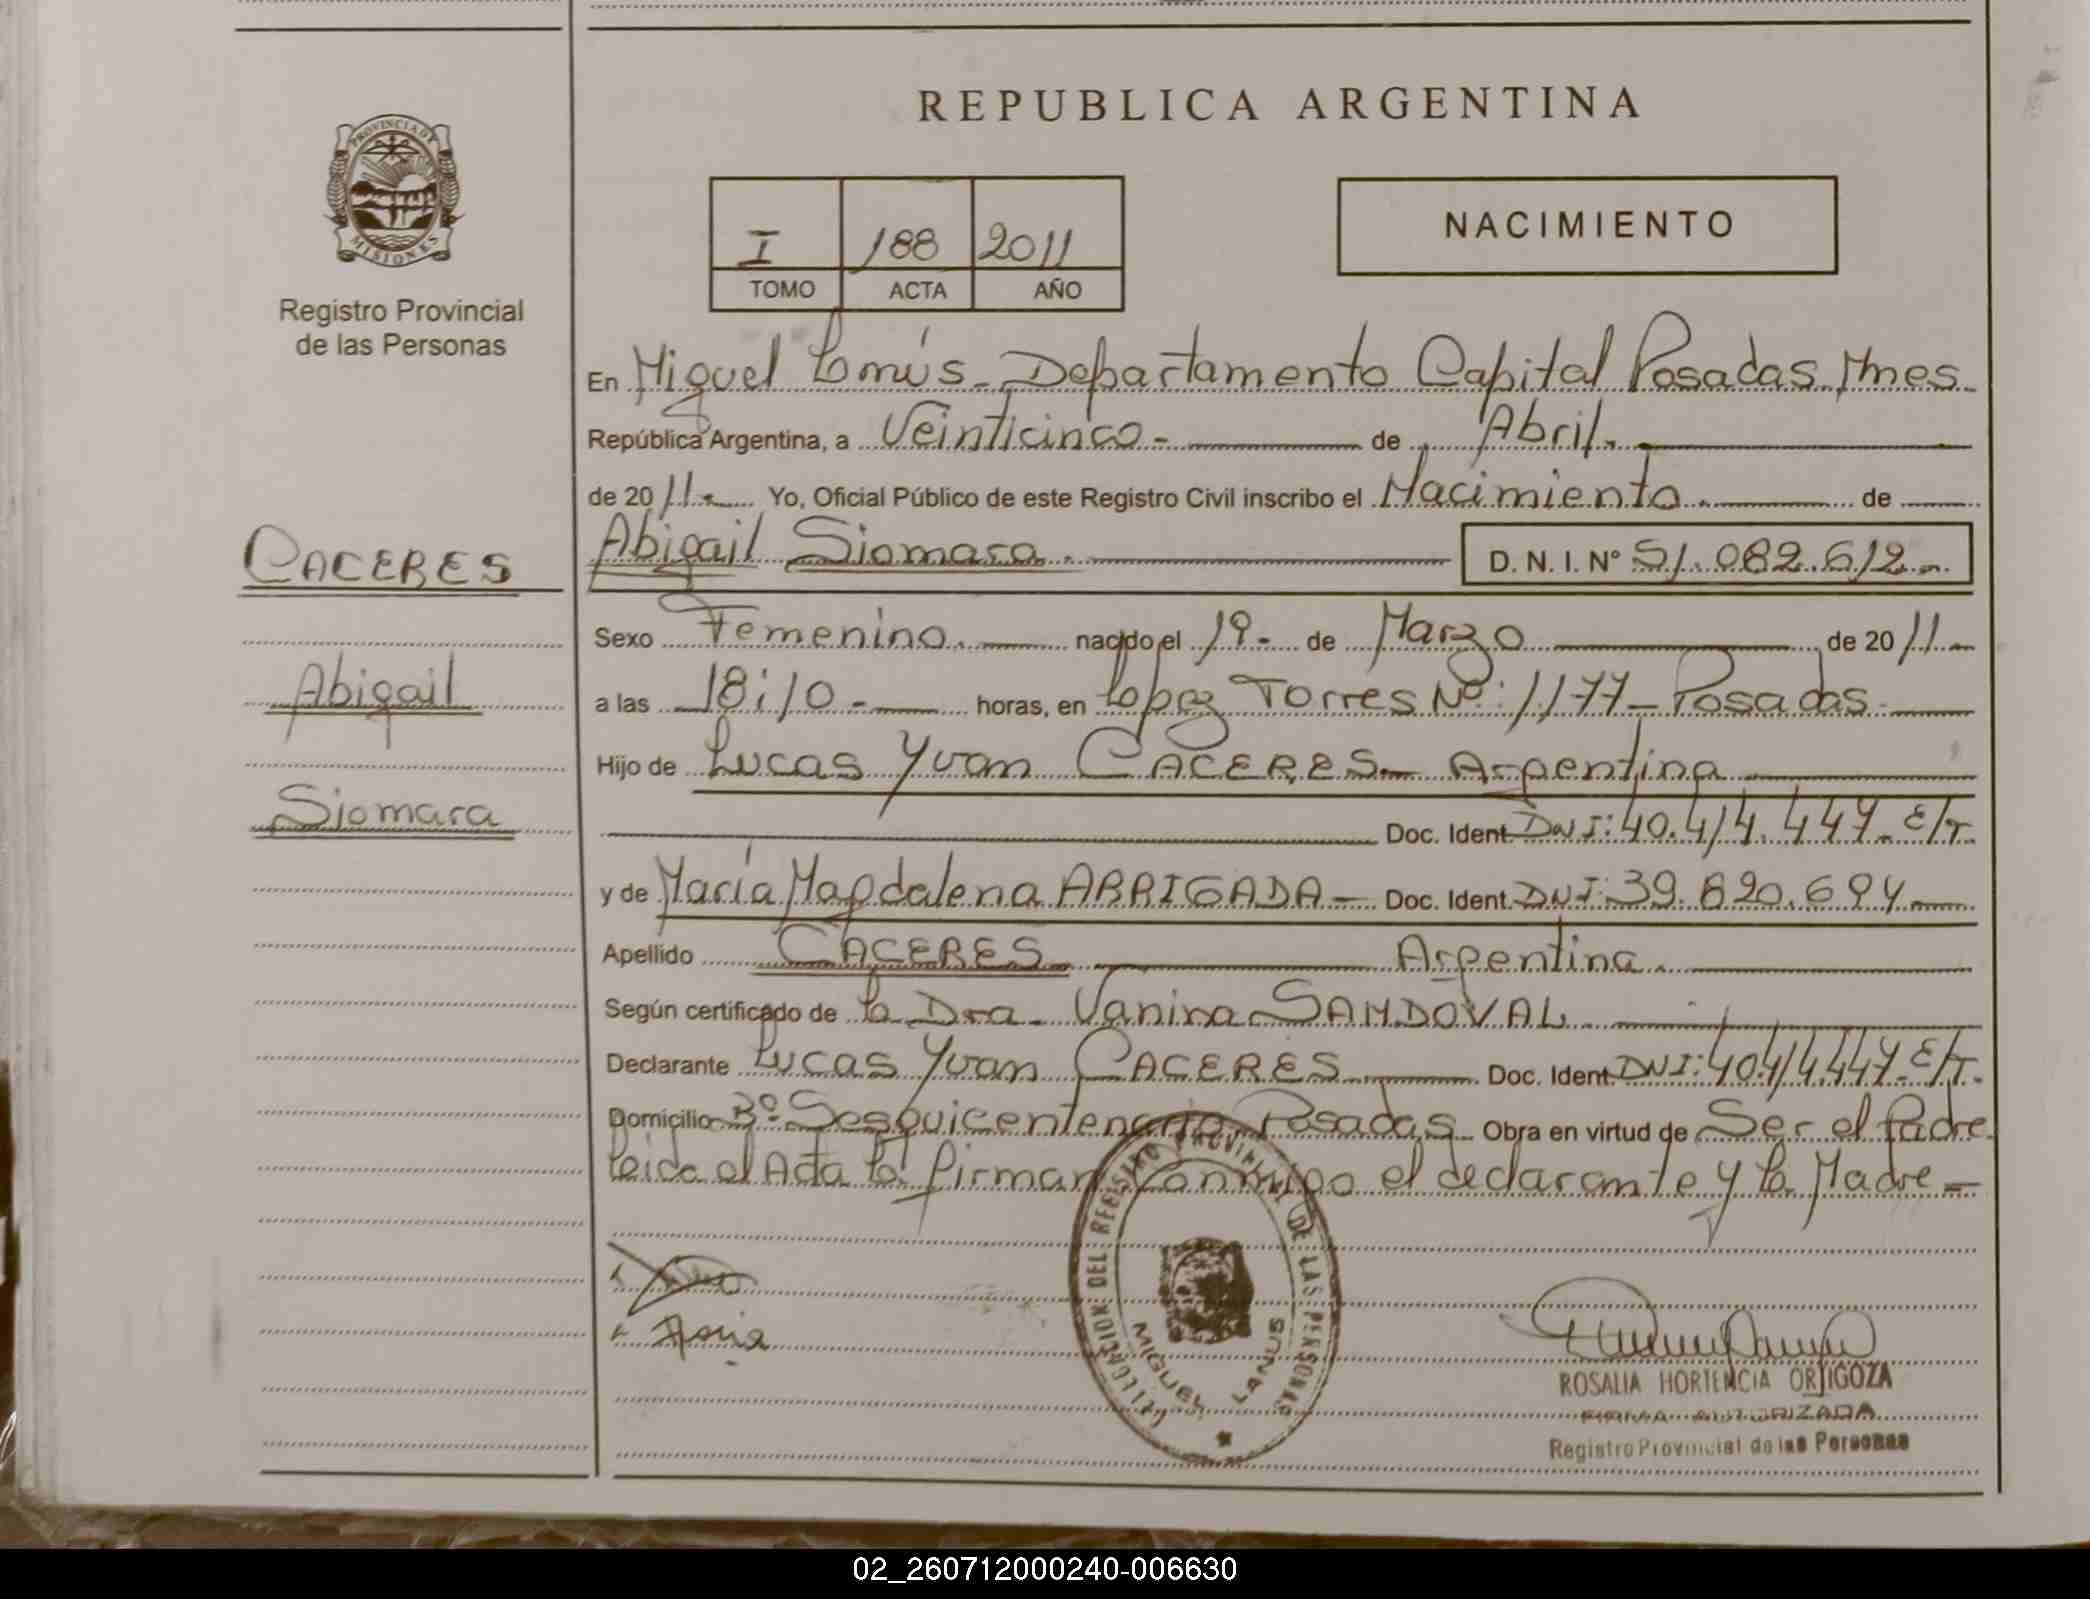 REPUBLICA ARGENTINA
PROVINCIA DE
MISIONES
Registro Provincial
de las Personas
I 188 2011
TOMO ACTA AÑO
NACIMIENTO
En Miguel Lanús - Departamento Capital Posadas Mnes.
República Argentina, a Veinticinco.- de Abril.
de 2011.- Yo, Oficial Público de este Registro Civil inscribo el Nacimiento. de
CACERES
Abigail Siomara.
D. N. I. Nº 51.082.612.-
Sexo Femenino. nacido el 19- de Marzo de 2011.-
Abigail
a las 18:10.- horas, en Lopez Torres Nº: 1177 - Posadas.
Hijo de Lucas Yvan CACERES - Argentina
Siomara
Doc. Ident. DNI: 40.414.447. E/T.
y de María Magdalena ARRIGADA - Doc. Ident. DNI: 39.820.694.
Apellido CACERES Argentina.
Según certificado de la Dra. Vanina SANDOVAL.
Declarante Lucas Yvan CACERES Doc. Ident. DNI: 40414447. E/T.
Domicilio Bº. Sesquicentenario Posadas. Obra en virtud de Ser el Padre
leida el Acta la firman conmigo el declarante y la Madre -
DELEGACION DEL REGISTRO PROVINCIAL DE LAS PERSONAS
MIGUEL LANUS
ROSALIA HORTENCIA ORTIGOZA
FIRMA AUTORIZADA
Registro Provincial de las Personas
02_260712000240-006630